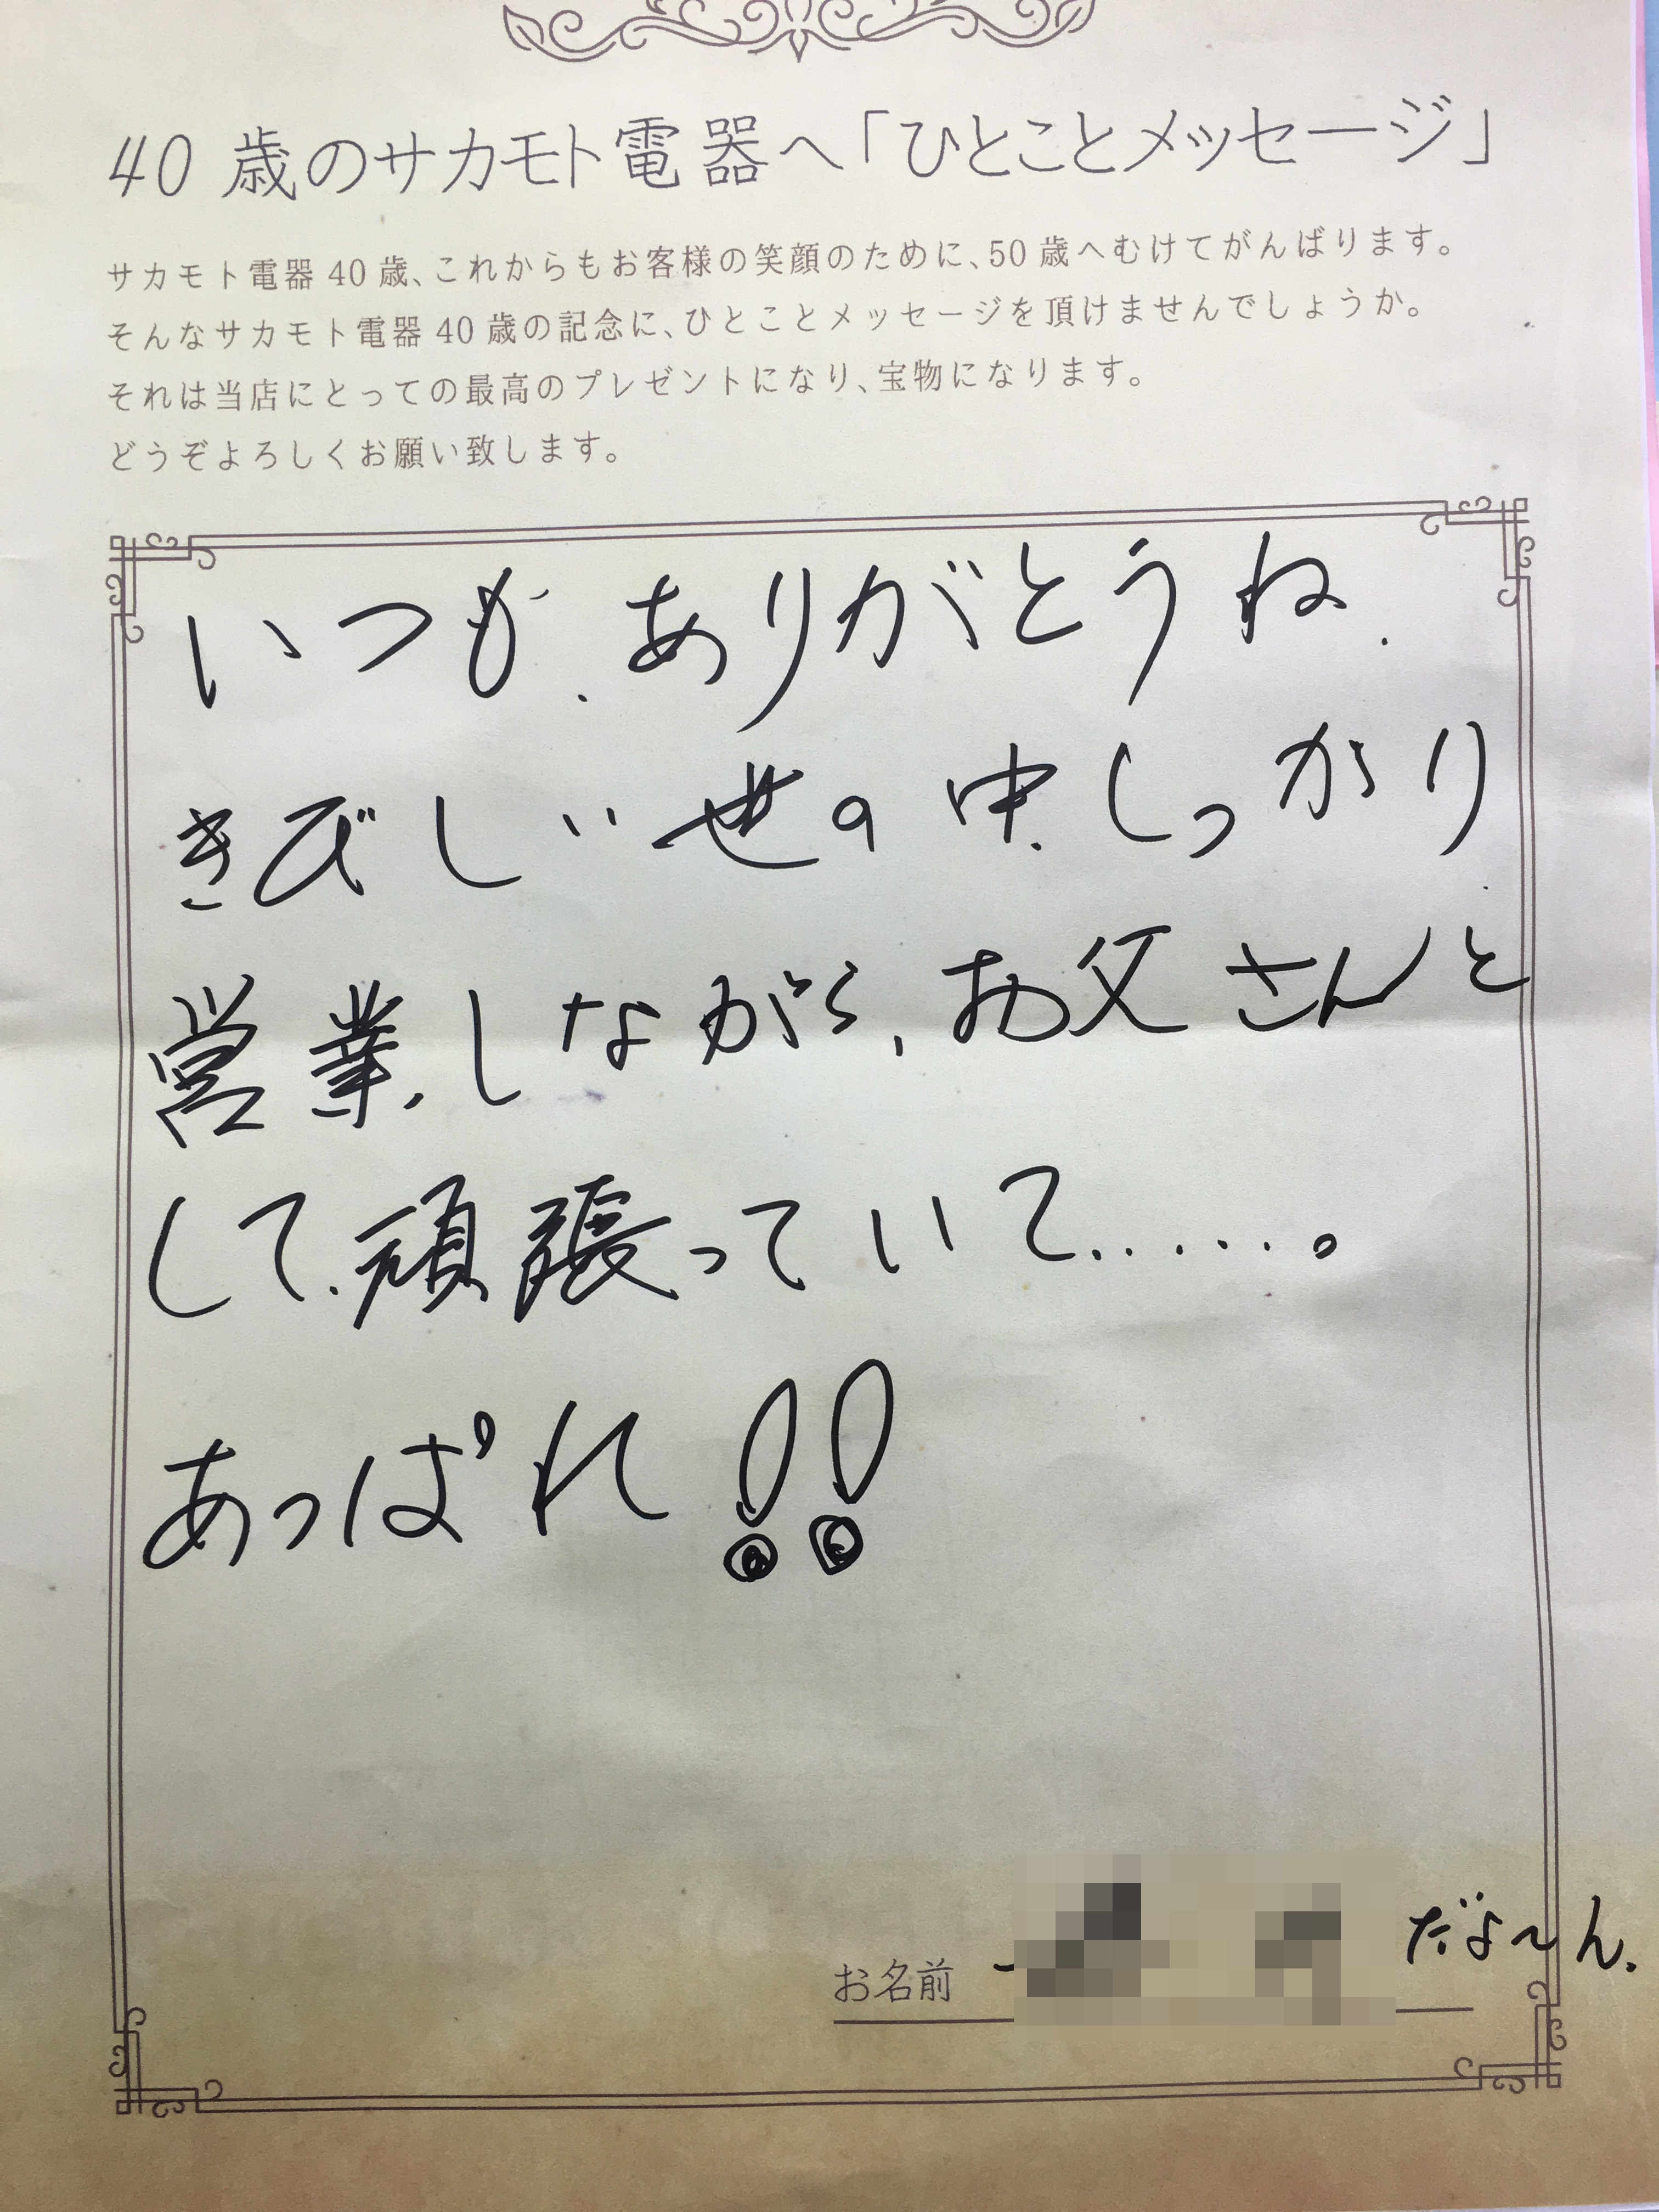 40歳のサカモト電器へ「ひとことメッセージ」
サカモト電器40歳、これからもお客様の笑顔のために、50歳へむけてがんばります。
そんなサカモト電器40歳の記念に、ひとことメッセージを頂けませんでしょうか。
それは当店にとっての最高のプレゼントになり、宝物になります。
どうぞよろしくお願い致します。
いつも、ありがとうね.
きびしい世の中.しっかり
営業.しながら、お父さんと
して.頑張っていて......。
あっぱれ!!
お名前 だよ〜ん.